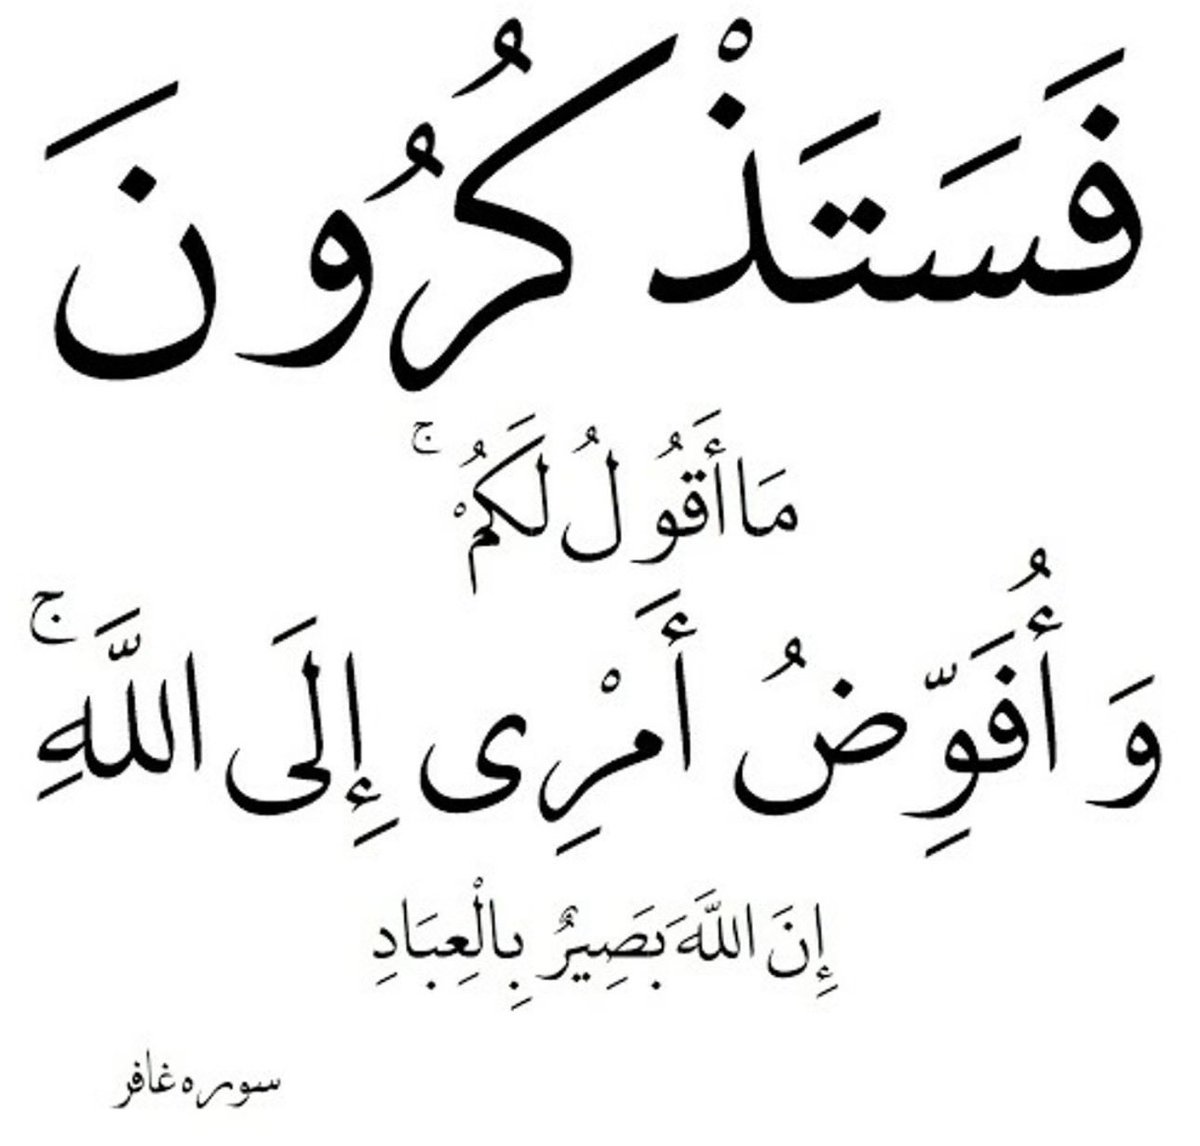 فَسَتَذْكُرُونَ
مَا أَقُولُ لَكُمْ ۚ
وَ أُفَوِّضُ أَمْرِى إِلَى اللَّهِ ۚ
إِنَ اللَّهَ بَصِيرٌ بِالْعِبَادِ
سوره غافر